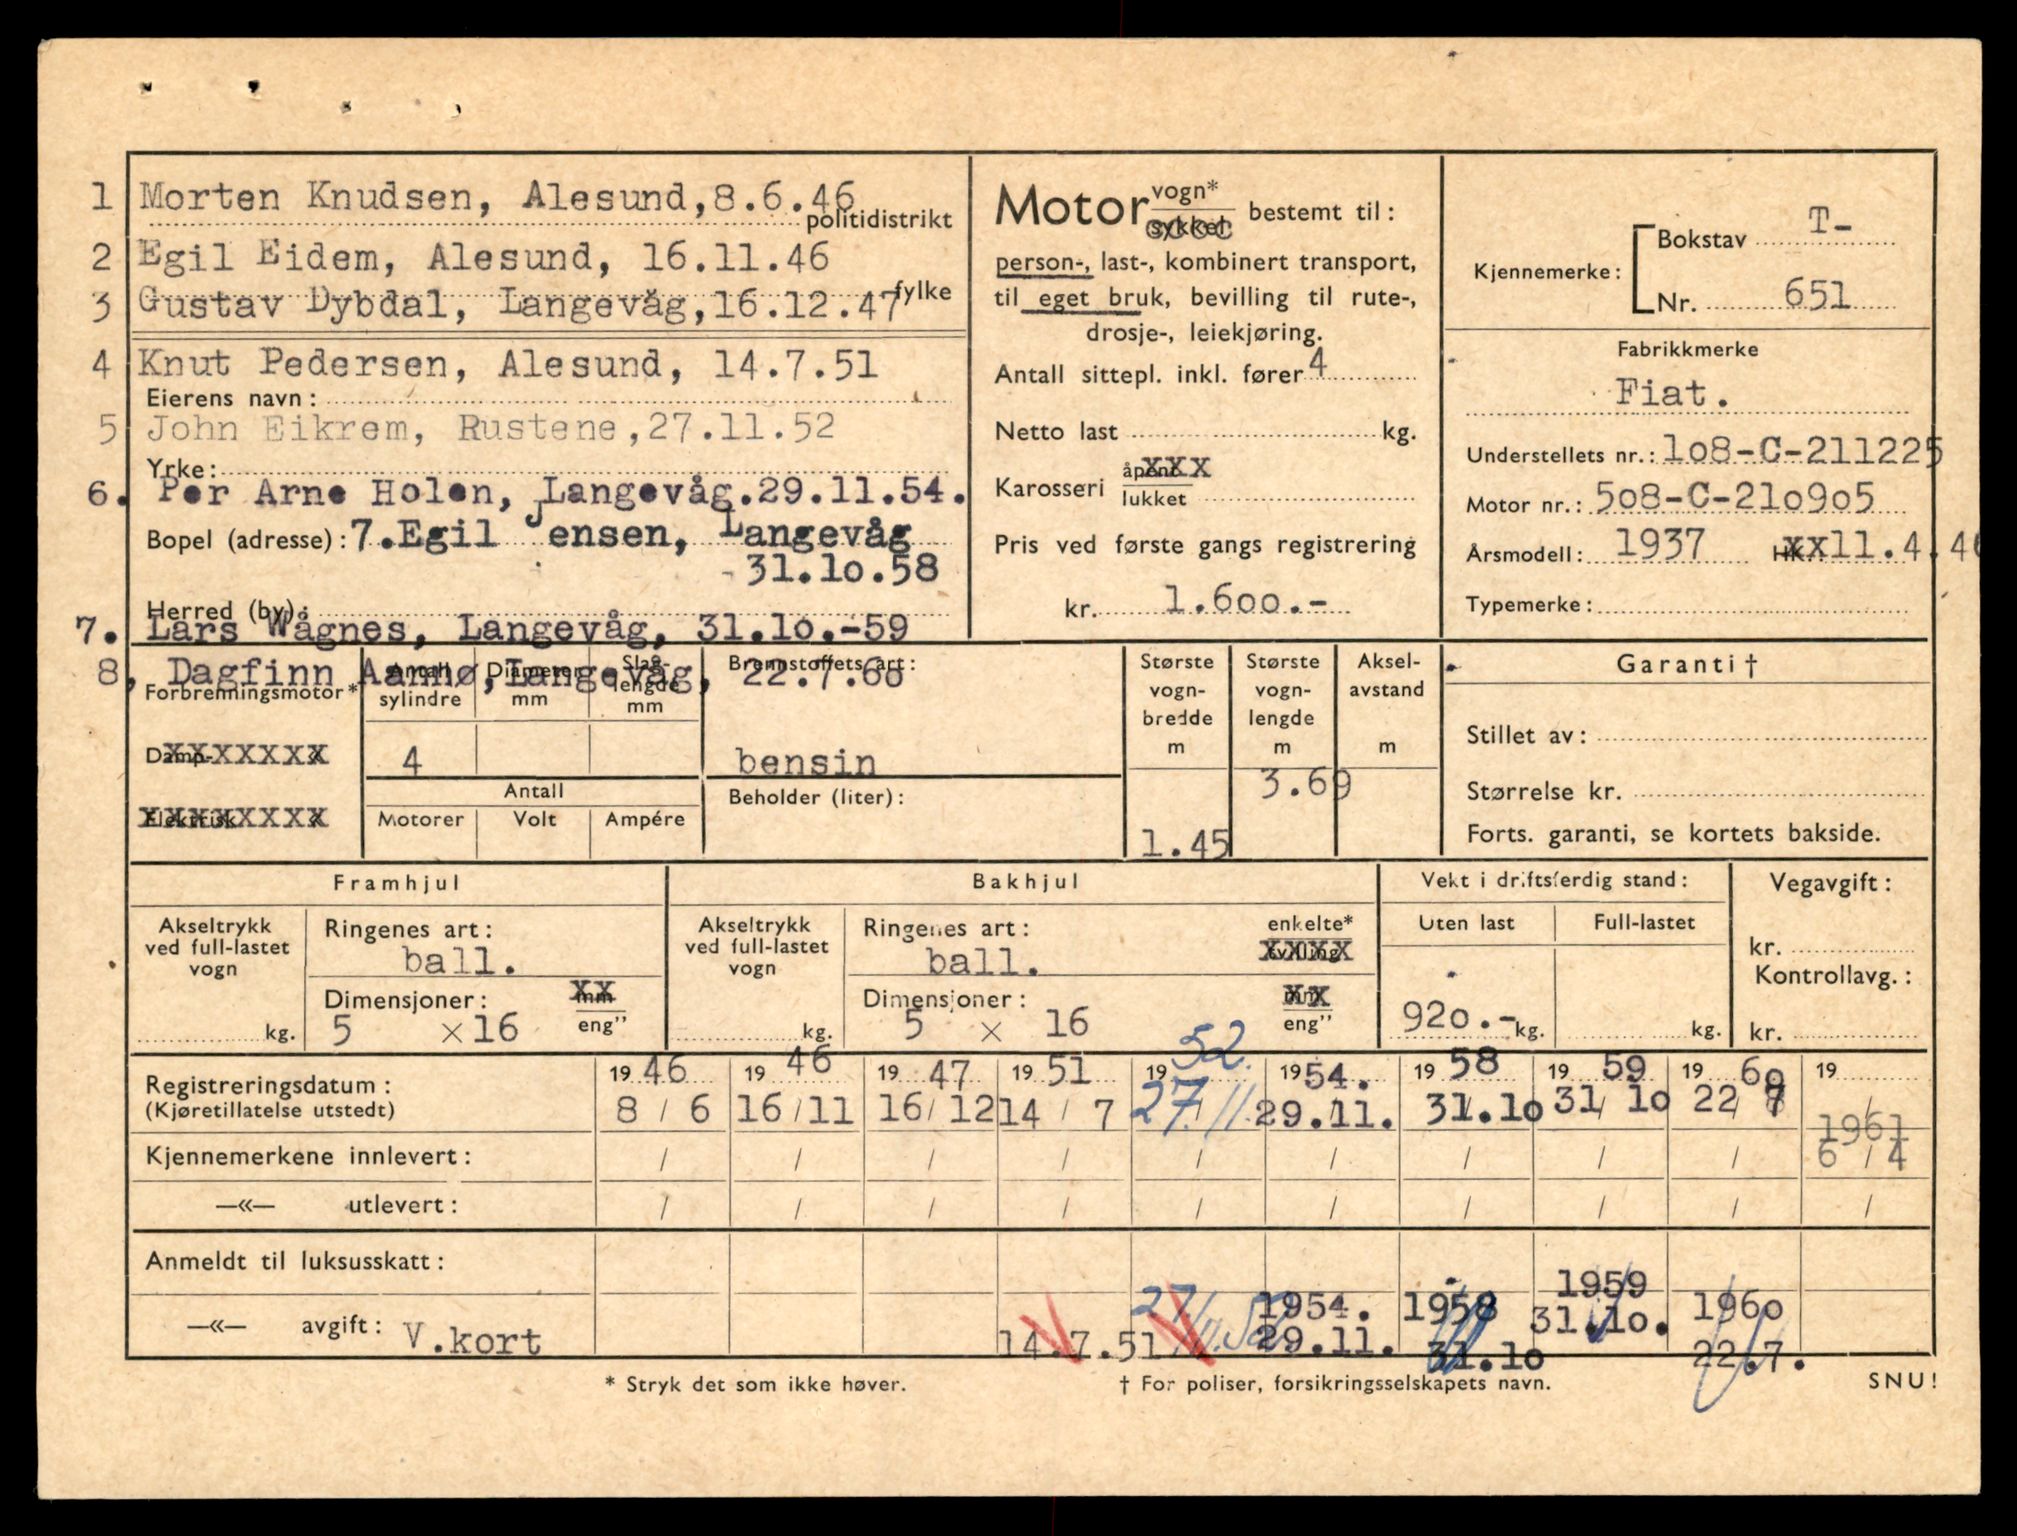 1 Morten Knudsen, Alesund,8.6.46
politidistrikt
2 Egil Eidem, Alesund, 16.11.46
fylke
3 Gustav Dybdal, Langevåg,16.12.47
4 Knut Pedersen, Alesund, 14.7.51
Eierens navn:
5 John Eikrem, Rustene,27.11.52
Yrke:
6. Per Arne Holen, Langevåg.29.11.54.
Bopel (adresse): 7.Egil Jensen, Langevåg
31.10.58
Herred (by):
7. Lars Wågnes, Langevåg, 31.10.-59
8, Dagfinn Aarhø, Langevåg, 22.7.60
Motor vogn* sykkel bestemt til:
person-, last-, kombinert transport,
til eget bruk, bevilling til rute-,
drosje-, leiekjøring.
Antall sittepl. inkl. fører 4
Netto last kg.
Karosseri åpent xxx
lukket
Pris ved første gangs registrering
kr. 1.600.-
Kjennemerke: Bokstav T-
Nr. 651
Fabrikkmerke
Fiat.
Understellets nr.: 108-C-211225
Motor nr.: 508-C-210905
Årsmodell: 1937 HK. xx11.4.46
Typemerke:
Forbrenningsmotor*
Antall sylindre
Diameter mm
Slag-lengde mm
Brennstoffets art:
Damp- xxxxxxx
4
bensin
Elektrisk xxxxxxxx
Antall
Motorer Volt Ampére
Beholder (liter):
Største vogn-bredde m
1.45
Største vogn-lengde m
3.69
Aksel-avstand m
Garanti †
Stillet av:
Størrelse kr.
Forts. garanti, se kortets bakside.
Framhjul
Akseltrykk ved full-lastet vogn
kg.
Ringenes art:
ball.
Dimensjoner: xx mm
5 x 16 eng"
Bakhjul
Akseltrykk ved full-lastet vogn
kg.
Ringenes art: enkelte*
ball. xxxx tvilling
Dimensjoner: xx mm
5 x 16 eng"
Vekt i driftsferdig stand:
Uten last Full-lastet
920.- kg. kg.
Vegavgift:
kr.
Kontrollavg.:
kr.
Registreringsdatum: 19 46 19 46 19 47 19 51 19 52. 19 54. 19 58 19 59 19 60 19
(Kjøretillatelse utstedt) 8 / 6 16/11 16/ 12 14 / 7 27/11 29.11. 31.10 31/ 10 22/ 7 /
1961
Kjennemerkene innlevert: / / / / / / / / / 6 / 4
—«— utlevert: / / / / / / / / / /
Anmeldt til luksusskatt:
—«— avgift: V.kort
14.7.51
27/11.52
1954.
29.11.
1958
31.10
1959
31.10.
1960
22.7.
* Stryk det som ikke høver.
† For poliser, forsikringsselskapets navn.
SNU!